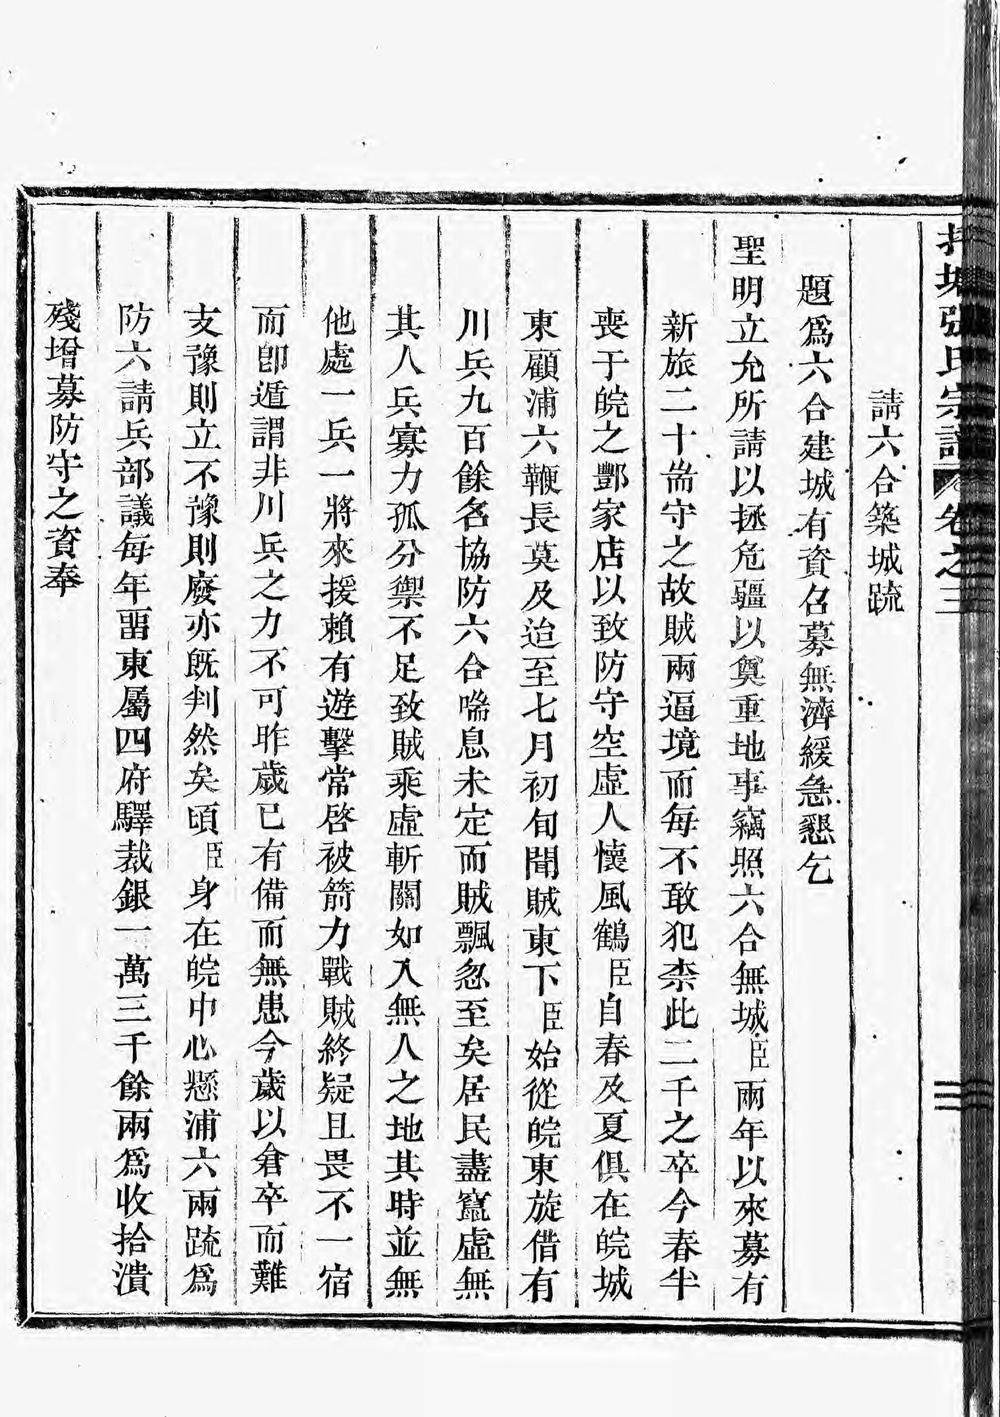 張氏宗譜 卷之三
請六合築城疏
題爲六合建城有資召募無濟緩急懇乞
聖明立允所請以拯危疆以奠重地事竊照六合無城臣兩年以來募有
新旅二十耑守之故賊兩逼境而每不敢犯柰此二千之卒今春半
喪于皖之酆家店以致防守空虛人懷風鶴臣自春及夏俱在皖城
東顧浦六鞭長莫及迨至七月初旬聞賊東下臣始從皖東旋借有
川兵九百餘名協防六合喘息未定而賊飄忽至矣居民盡竄虛無
其人兵寡力孤分禦不足致賊乘虛斬關如入無人之地其時並無
他處一兵一將來援賴有遊擊常啓被箭力戰賊終疑且畏不一宿
而卽遁謂非川兵之力不可昨歲已有備而無患今歲以倉卒而難
支豫則立不豫則廢亦旣判然矣頃臣身在皖中心懸浦六兩疏爲
防六請兵部議每年畱東屬四府驛裁銀一萬三千餘兩爲收拾潰
殘增募防守之資奉